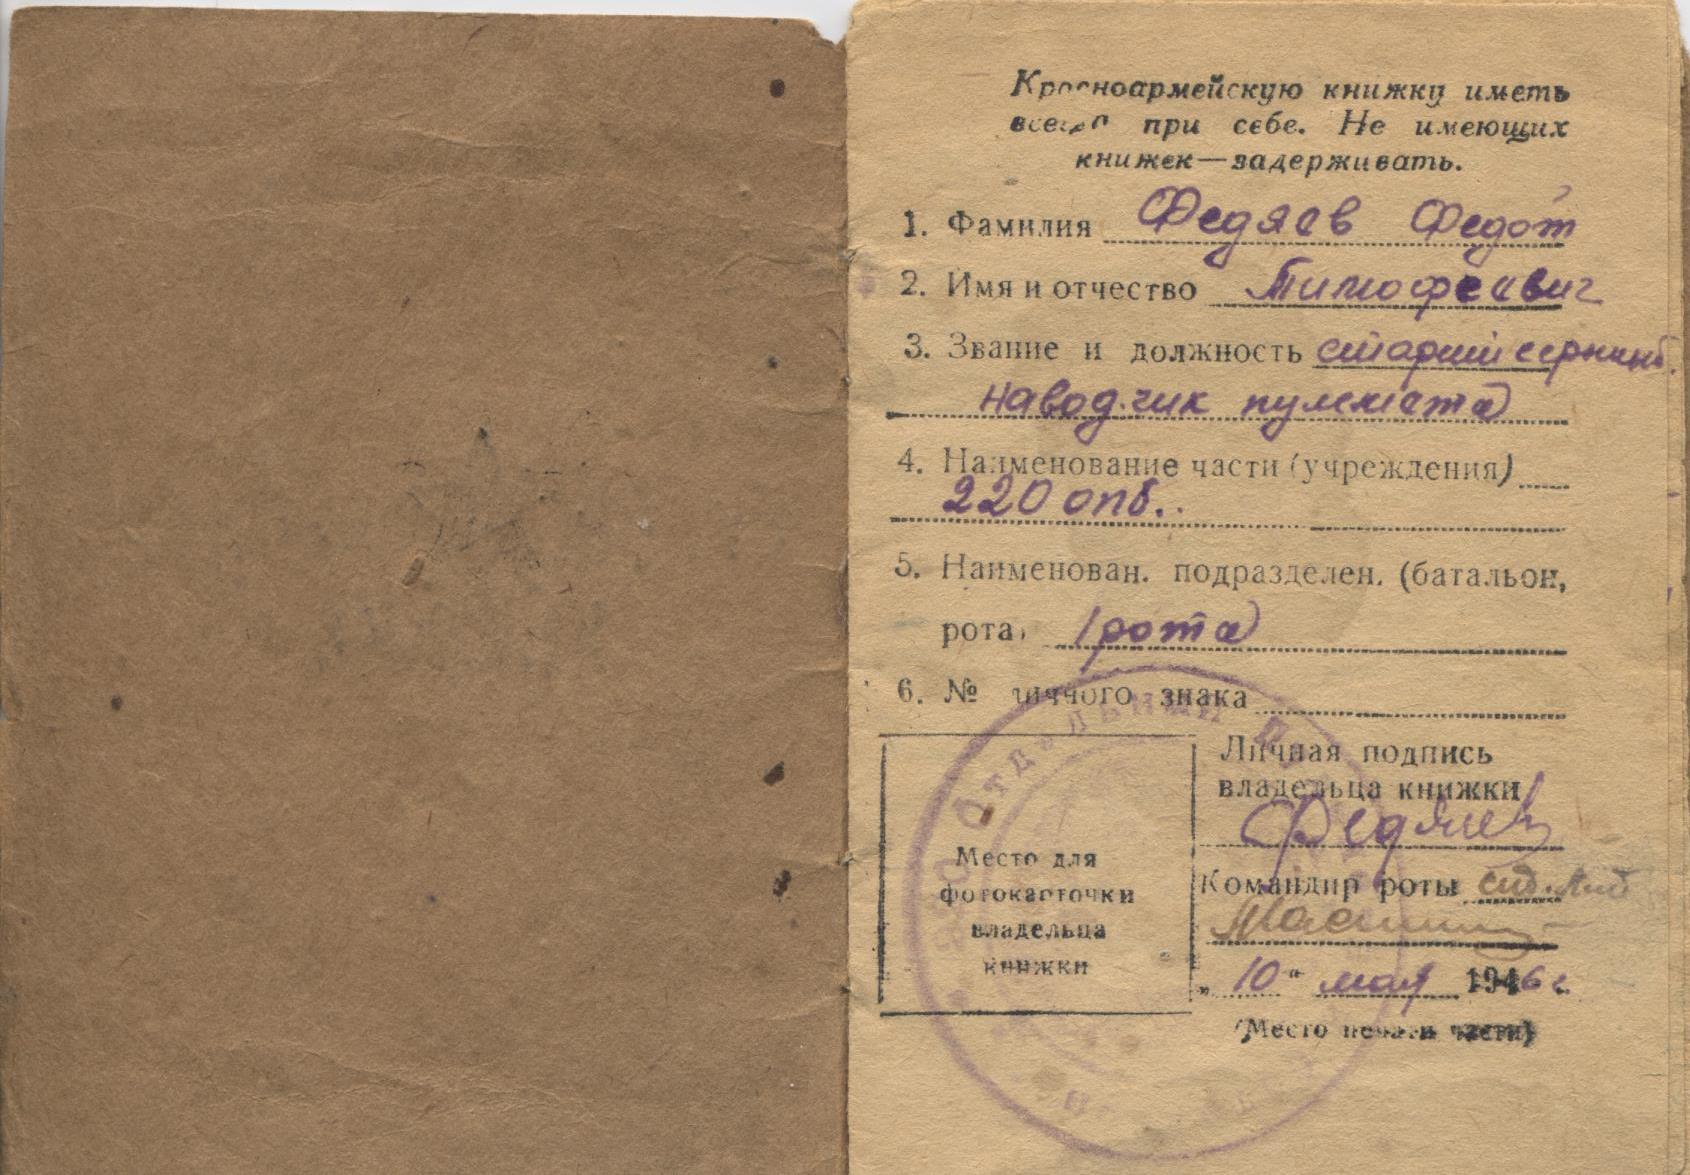 Красноармейскую книжку иметь
всегда при себе. Не имеющих
книжек—задерживать.
1. Фамилия Федяев Федот
2. Имя и отчество Тимофеевич
3. Звание и должность старший сержант
наводчик пулемета
4. Наименование части (учреждения)
220 опб.
5. Наименован. подразделен. (батальон,
рота) 1 рота
6. № личного знака
Личная подпись
владельца книжки
Федяев
Командир роты
Место для
фотокарточки
владельца
книжки
„10" мая 1946 г.
(Место печати части)
Отдельный